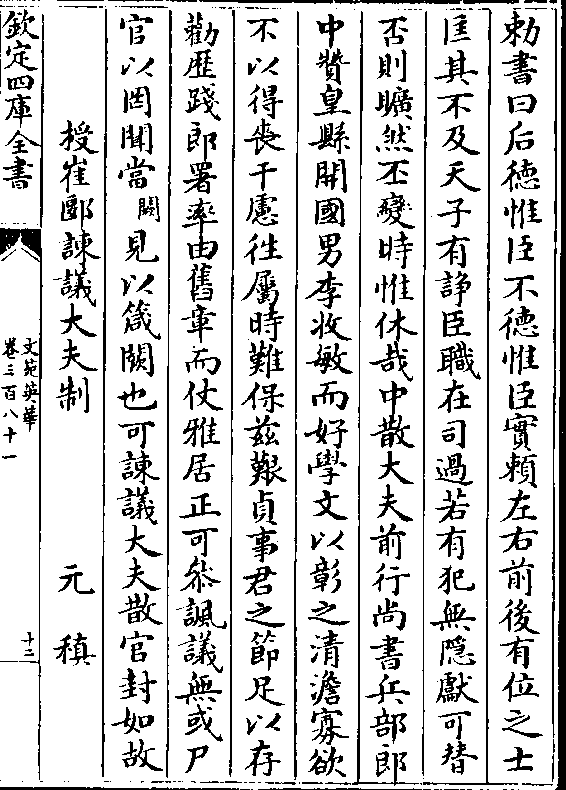 勅書曰后徳惟臣不徳惟臣實頼左右前後有位之士
匡其不及天子有諍臣職在司過若有犯無隠獻可替
否則曠然丕變時惟休哉中散大夫前行尚書兵部郎
中贊皇縣開國男李收敏而好學文以彰之清澹寡欲
不以得喪干慮徃屬時難保兹艱貞事君之節足以存
勸歴踐郎署率由舊章而仗雅居正可叅諷議無或尸
官以罔聞當闕見以箴闕也可諫議大夫散官封如故
授崔郾諫議大夫制 元稹
欽定四庫全書
文苑英華
卷三百八十一
十二